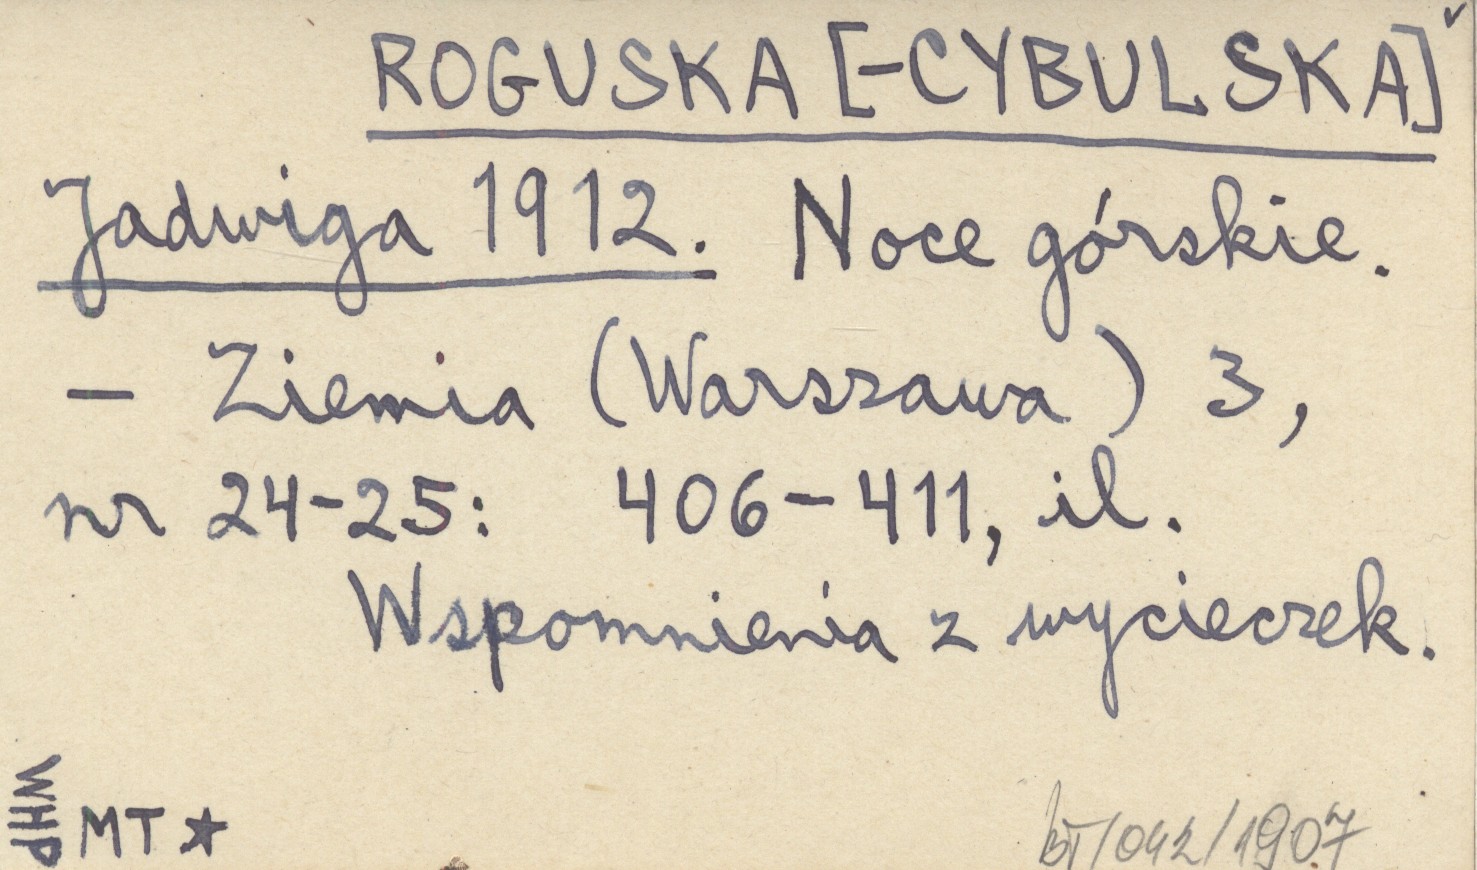 ROGUSKA [-CYBULSKA]
Jadwiga 1912. Noce górskie.
— Ziemia (Warszawa) 3,
nr 24-25: 406-411, il.
Wspomnienia z wycieczek.
WHP MT ★
bT/042/1907